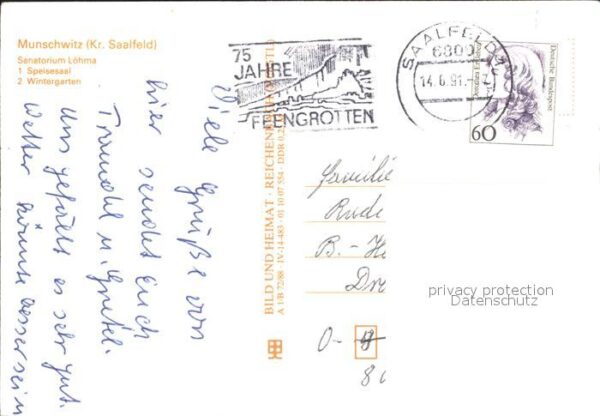 Munschwitz (Kr. Saalfeld)
Sanatorium Löhma
1 Speisesaal
2 Wintergarten
75
JAHRE
FEENGROTTEN
SAALFELD
6800
14.6.91.-
Deutsche Bundespost
60
Viele Grüße von
hier sendet Euch
Traudl u. Gretel.
Uns gefällt es sehr gut.
Wetter könnte besser sein
BILD UND HEIMAT · REICHENBACH
A 1/B 72/88 · IV-14-483 · 01 10 07 554 · DDR
Familie
Rude
B.-He
Dre
O-
80
privacy protection
Datenschutz